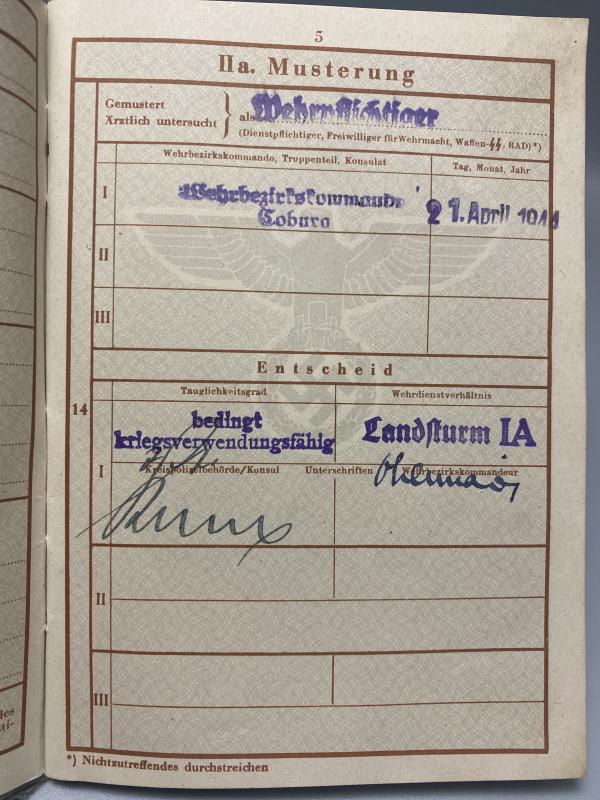 5
IIa. Musterung
Gemustert
Ärztlich untersucht } als Wehrpflichtiger
(Dienstpflichtiger, Freiwilliger für Wehrmacht, Waffen-SS, RAD)*)
Wehrbezirkskommando, Truppenteil, Konsulat Tag, Monat, Jahr
I Wehrbezirkskommando
Coburg 21. April 1944
II
III
Entscheid
Tauglichkeitsgrad Wehrdienstverhältnis
14
bedingt
kriegsverwendungsfähig Landsturm IA
I Kreispolizeibehörde/Konsul Unterschriften Wehrbezirkskommandeur
II
III
*) Nichtzutreffendes durchstreichen